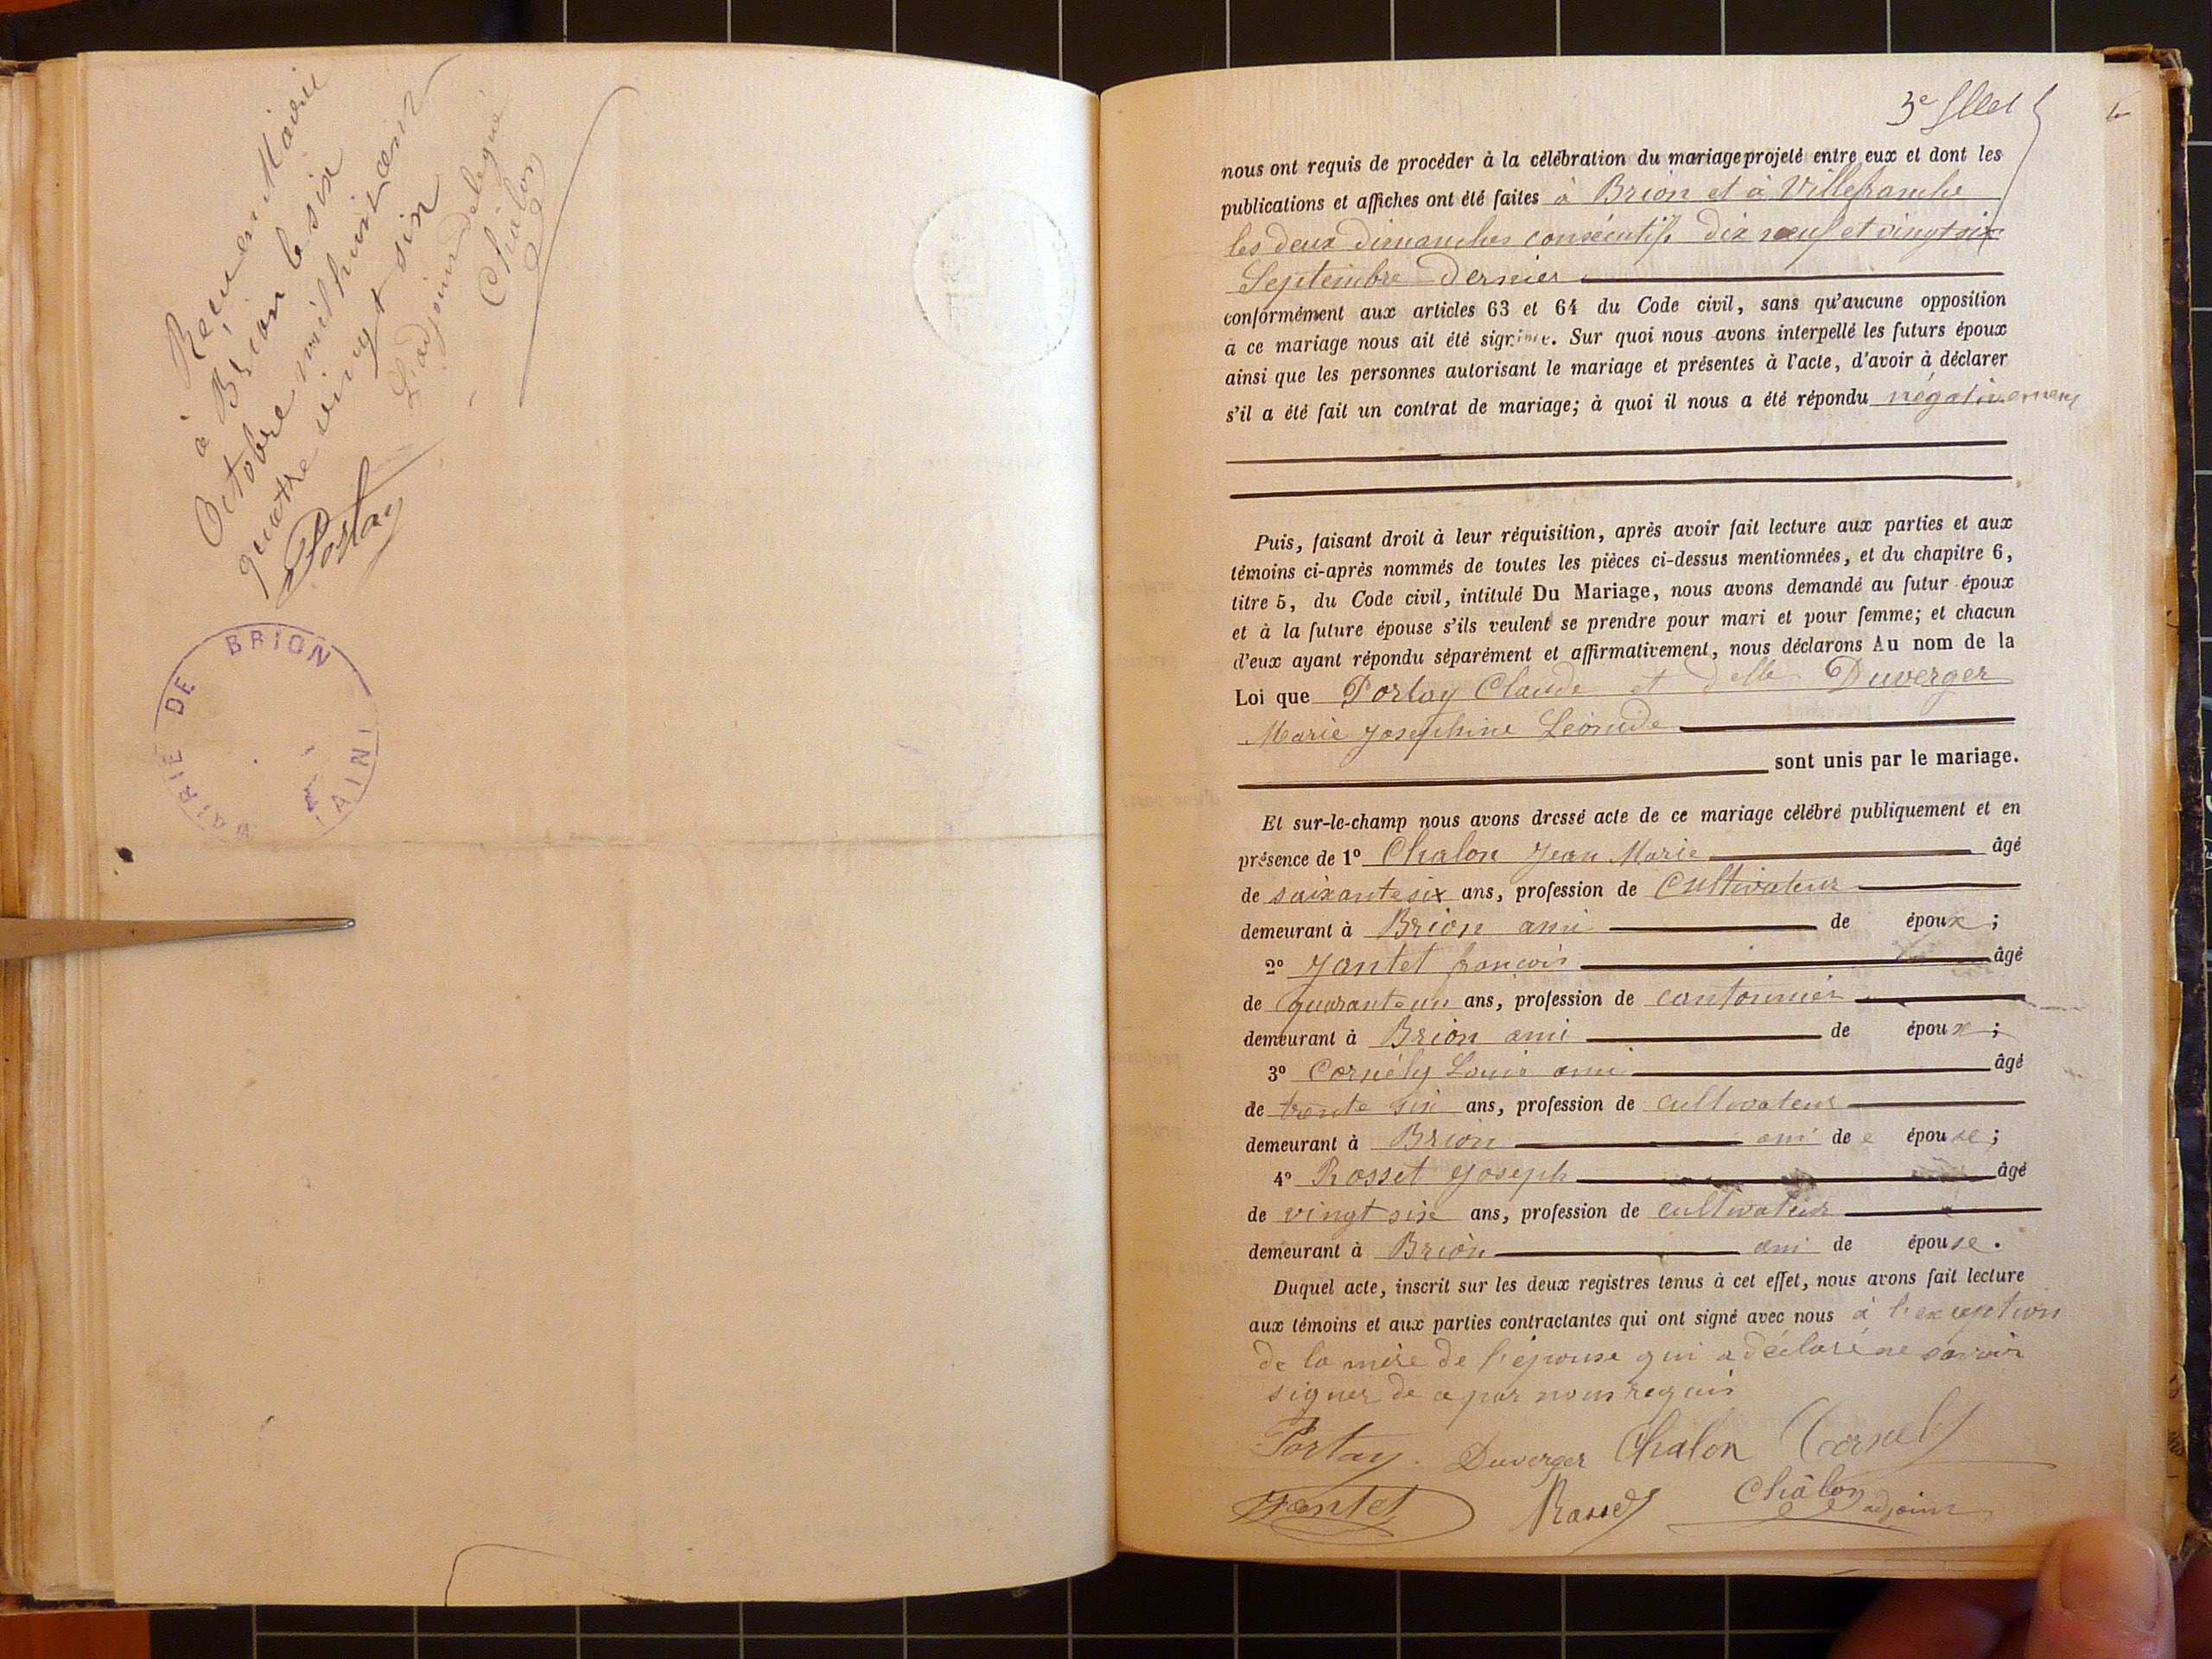 Reçu en Mairie
à Brion le six
Octobre mil huit cent
quatre vingt six
L'adjoint délégué
Chalon
Portay
MAIRIE DE BRION
(AIN)
3e fllet
nous ont requis de procéder à la célébration du mariage projeté entre eux et dont les
publications et affiches ont été faites à Brion et à Villefranche
les deux dimanches consécutifs dix neuf et vingt six
Septembre dernier
conformément aux articles 63 et 64 du Code civil, sans qu'aucune opposition
à ce mariage nous ait été signifiée. Sur quoi nous avons interpellé les futurs époux
ainsi que les personnes autorisant le mariage et présentes à l'acte, d'avoir à déclarer
s'il a été fait un contrat de mariage; à quoi il nous a été répondu négativement
Puis, faisant droit à leur réquisition, après avoir fait lecture aux parties et aux
témoins ci-après nommés de toutes les pièces ci-dessus mentionnées, et du chapitre 6,
titre 5, du Code civil, intitulé Du Mariage, nous avons demandé au futur époux
et à la future épouse s'ils veulent se prendre pour mari et pour femme; et chacun
d'eux ayant répondu séparément et affirmativement, nous déclarons Au nom de la
Loi que Portay Claude et delle Duverger
Marie Josephine Léonide
sont unis par le mariage.
Et sur-le-champ nous avons dressé acte de ce mariage célébré publiquement et en
présence de 1º Chalon Jean Marie âgé
de soixante six ans, profession de Cultivateur
demeurant à Brion ami de époux;
2º Jantet françois âgé
de quarante un ans, profession de cantonnier
demeurant à Brion ami de époux;
3º Cornély Louis ami âgé
de trente six ans, profession de cultivateur
demeurant à Brion ami de e épouse;
4º Rosset Joseph âgé
de vingt six ans, profession de cultivateur
demeurant à Brion ami de épouse.
Duquel acte, inscrit sur les deux registres tenus à cet effet, nous avons fait lecture
aux témoins et aux parties contractantes qui ont signé avec nous à l'exception
de la mère de l'épouse qui a déclaré ne savoir
signer de ce par nous requis
Portay. Duverger Chalon Cornely
Jantet Rosset Châlon adjoint